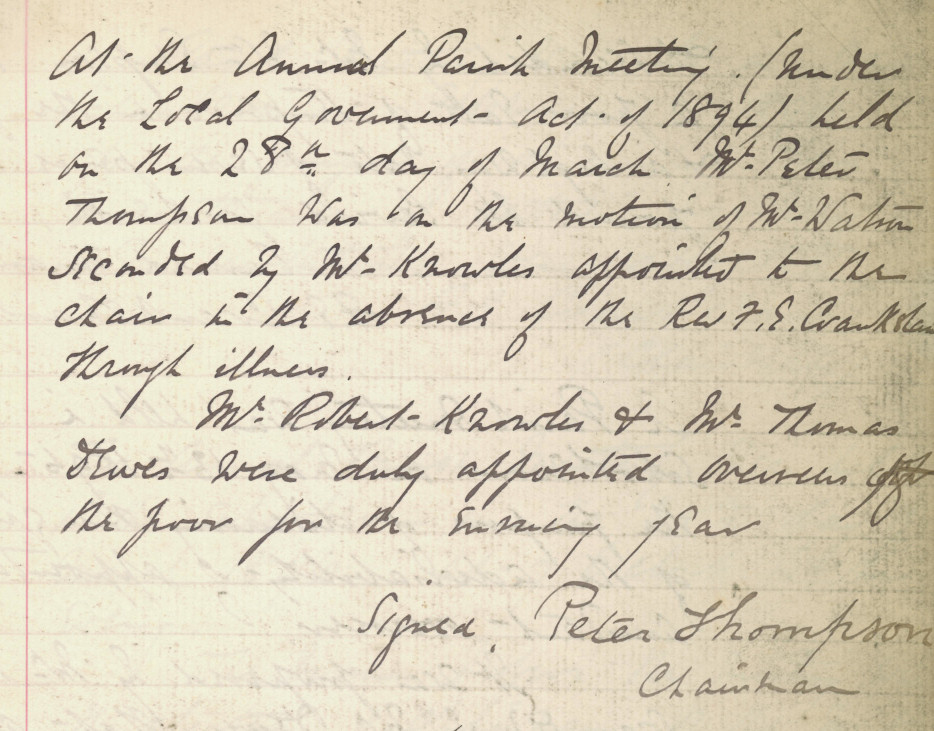 At the Annual Parish Meeting. (under
the Local Government Act of 1894) held
on the 28th day of March Mr. Peter
Thompson was on the motion of Mr. Watson
seconded by Mr. Knowles appointed to the
chair in the absence of the Rev F. E.
through illness.
Mr. Robert Knowles & Mr. Thomas
Dewes were duly appointed overseers of
the poor for the ensuing year
Signed, Peter Thompson
Chairman